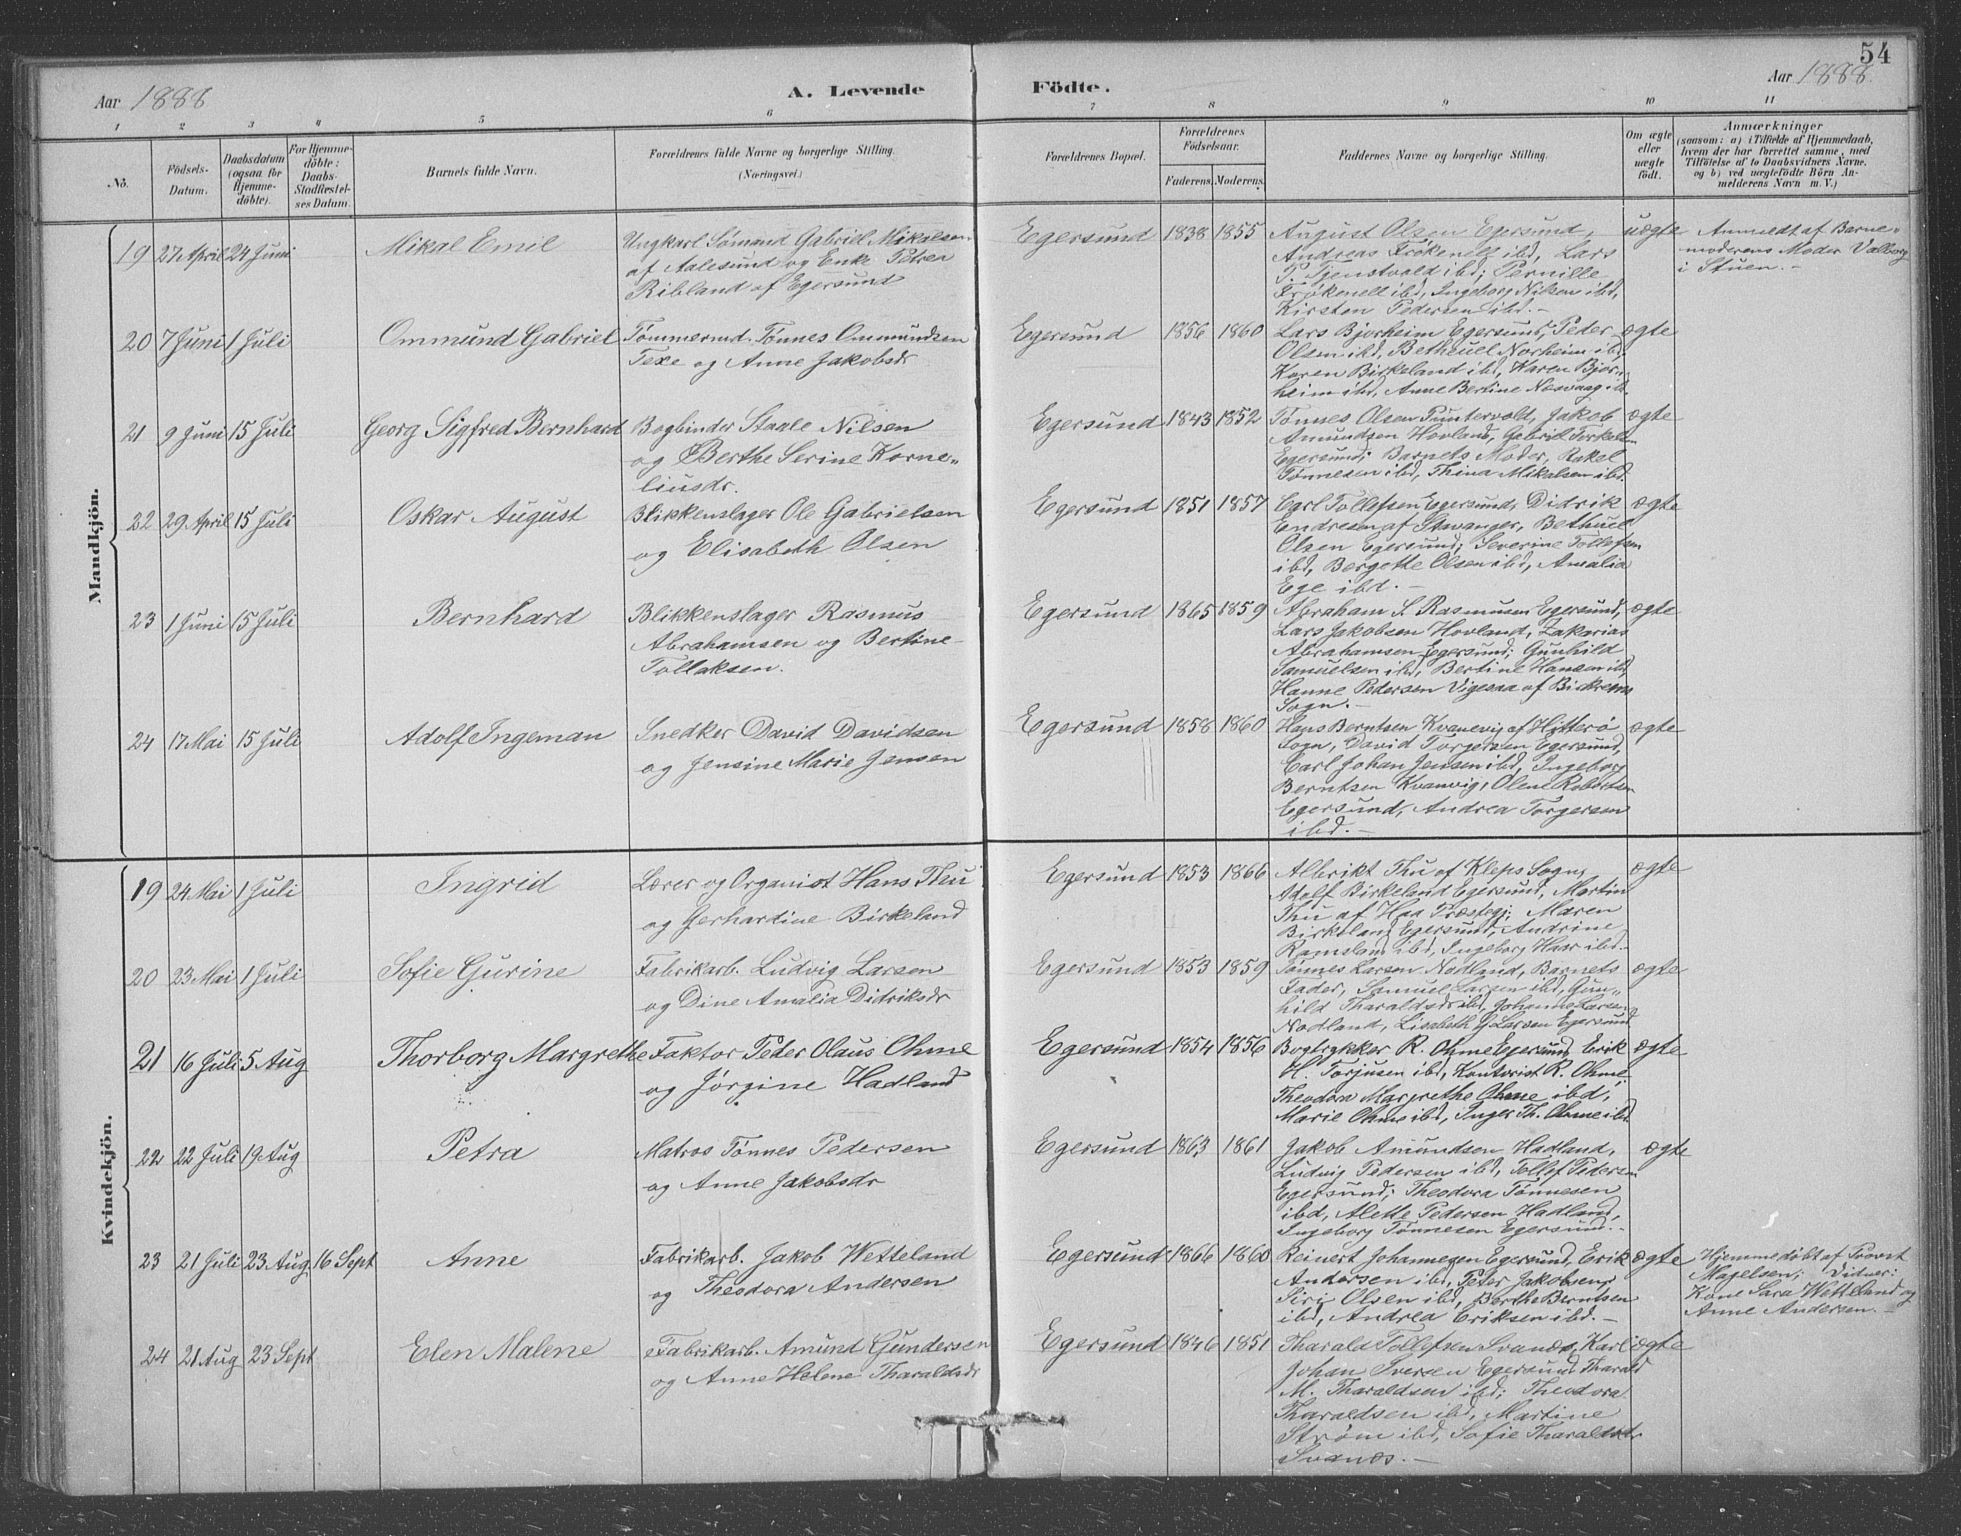 54
Aar 1888
A. Levende Födte.
Aar 1888.
1 2 3 4 5 6 7 8 9 10 11
No.
Födsels-Datum.
Daabsdatum (ogsaa for Hjemme-döbte).
For Hjemme-döbte: Daabs-Stadfæstel-ses Datum.
Barnets fulde Navn.
Forældrenes fulde Navne og borgerlige Stilling.
(Næringsvei.)
Forældrenes Bopæl.
Forældrenes Födselsaar.
Faderens. Moderens.
Faddernes Navne og borgerlige Stilling.
Om ægte eller uægte födt.
Anmærkninger
(saasom: a) i Tilfælde af Hjemmedaab,
hvem der har forrettet samme, med
Tilföielse af to Daabsvidners Navne.
og b) ved uægtefödte Börn An-
melderens Navn m. V.)
Mandkjön.
19 27 April 24 Juni Mikal Emil Ungkarl Sømand Gabriel Mikalsen
af Aalesund og Enke Petrea
Ribland af Egersund
Egersund 1838 1855 August Olsen Egersund,
Andreas Frøkenell ibd, Lars
P. Tjenstvold ibd; Pernille
Frøkenell ibd, Ingeborg Nilsen ibd,
Kirsten Pedersen ibd. –
uægte Anmeldt af Barne-
moderens Moder Valborg
i Stuen. –
20 7 Juni 1 Juli Ommund Gabriel Tømmermd. Tønnes Ommundsen
Texe og Anne Jakobsdr
Egersund 1856 1860 Lars Bjorheim Egersund, Peder
Olsen ibd, Bethuel Norheim ibd,
Karen Birkeland ibd, Karen Bjor-
heim ibd, Anne Bertine Næsvaag ib.
ægte
21 9 Juni 15 Juli Georg Sigfred Bernhard Bogbinder Staale Nilsen
og Berthe Serine Korne-
liusdr.
Egersund 1843 1852 Tønnes Olsen Puntervold, Jakob
Amundsen Hovland, Gabriel Torkels.
Egersund; Barnets Moder, Rakel
Tønnesen ibd, Thina Mikalsen ibd.
ægte
22 29 April 15 Juli Oskar August Blikkenslager Ole Gabrielsen
og Elisabeth Olsen
Egersund 1851 1857 Carl Tollefsen Egersund, Didrik
Endresen af Stavanger, Bethuel
Olsen Egersund; Severine Tollefsen
ibd, Bergette Olsen ibd, Amalia
Ege ibd. –
ægte
23 1 Juni 15 Juli Bernhard Blikkenslager Rasmus
Abrahamsen og Bertine
Tollaksen.
Egersund 1865 1859 Abraham S. Rasmusen Egersund,
Lars Jakobsen Hovland, Zakarias
Abrahamsen Egersund; Gunhild
Samuelsen ibd, Bertine Hansen ibd,
Hanne Pedersen Vigesaa af Birkrems
Sogn. –
ægte
24 17 Mai 15 Juli Adolf Ingeman Snedker David Davidsen
og Jensine Marie Jensen
Egersund 1858 1860 Hans Berntsen Kvanevig af Hitterö
Sogn, David Torgersen Egersund,
Carl Johan Jensen ibd, Ingeborg
Berntsen Kvanvig, Olene Robertsen
Egersund, Andrea Torgersen
ibd. –
ægte
Kvindekjön.
19 24 Mai 1 Juli Ingrid Lærer og Organist Hans Thu
og Gerhardine Birkeland
Egersund 1853 1866 Albrikt Thu af Kleps Sogn,
Adolf Birkeland Egersund, Martin
Thu af Haa Præstegj; Maren
Birkeland Egersund, Andrine
Ramsland ibd, Ingeborg Haar ibd. –
ægte
20 23 Mai 1 Juli Sofie Gurine Fabrikarb. Ludvig Larsen
og Dine Amalia Didriksdr
Egersund 1853 1859 Tønnes Larsen Nodland, Barnets
Fader, Samuel Larsen ibd, Gun-
hild Tharaldsdr ibd, Johanne Larsen
Nodland, Lisabeth G. Larsen Egersund
ægte
21 16 Juli 5 Aug Thorborg Margrethe Faktor Peder Olaus Ohme
og Jørgine Hadland
Egersund 1854 1856 Bogtrykker R. Ohme Egersund, Erik
H. Torjusen ibd, Kontorist R. Ohme;
Theodora Margrethe Ohme ibd,
Marie Ohme ibd, Inger Th. Ohme ibd
ægte
22 22 Juli 19 Aug Petra Matros Tønnes Pedersen
og Anne Jakobsdr
Egersund 1863 1861 Jakob Amundsen Hadland,
Ludvig Pedersen ibd, Tollef Pedersen
Egersund; Theodora Tønnesen
ibd, Alette Pedersen Hadland,
Ingeborg Tønnesen Egersund. –
ægte
23 21 Juli 23 Aug 16 Sept Anne Fabrikarb. Jakob Wetteland
og Theodora Andersen
Egersund 1866 1860 Reinert Johannesen Egersund, Erik
Andersen ibd, Peter Jakobsen;
Siri Olsen ibd, Berthe Berntsen
ibd, Andrea Eriksen ibd. –
ægte Hjemmedøbt af Provst
Magelsen; Vidner:
Kone Sara Wetteland og
Anne Andersen. –
24 21 Aug 23 Sept Elen Malene Fabrikarb. Amund Gundersen
og Anne Helene Tharaldsdr
Egersund 1846 1851 Tharald Tollefsen Svanæs, Karl
Johan Iversen Egersund, Tharald
M. Tharaldsen ibd; Theodora
Tharaldsen ibd, Martine
Strøm ibd, Sofie Tharaldsdr
Svanæs. –
ægte